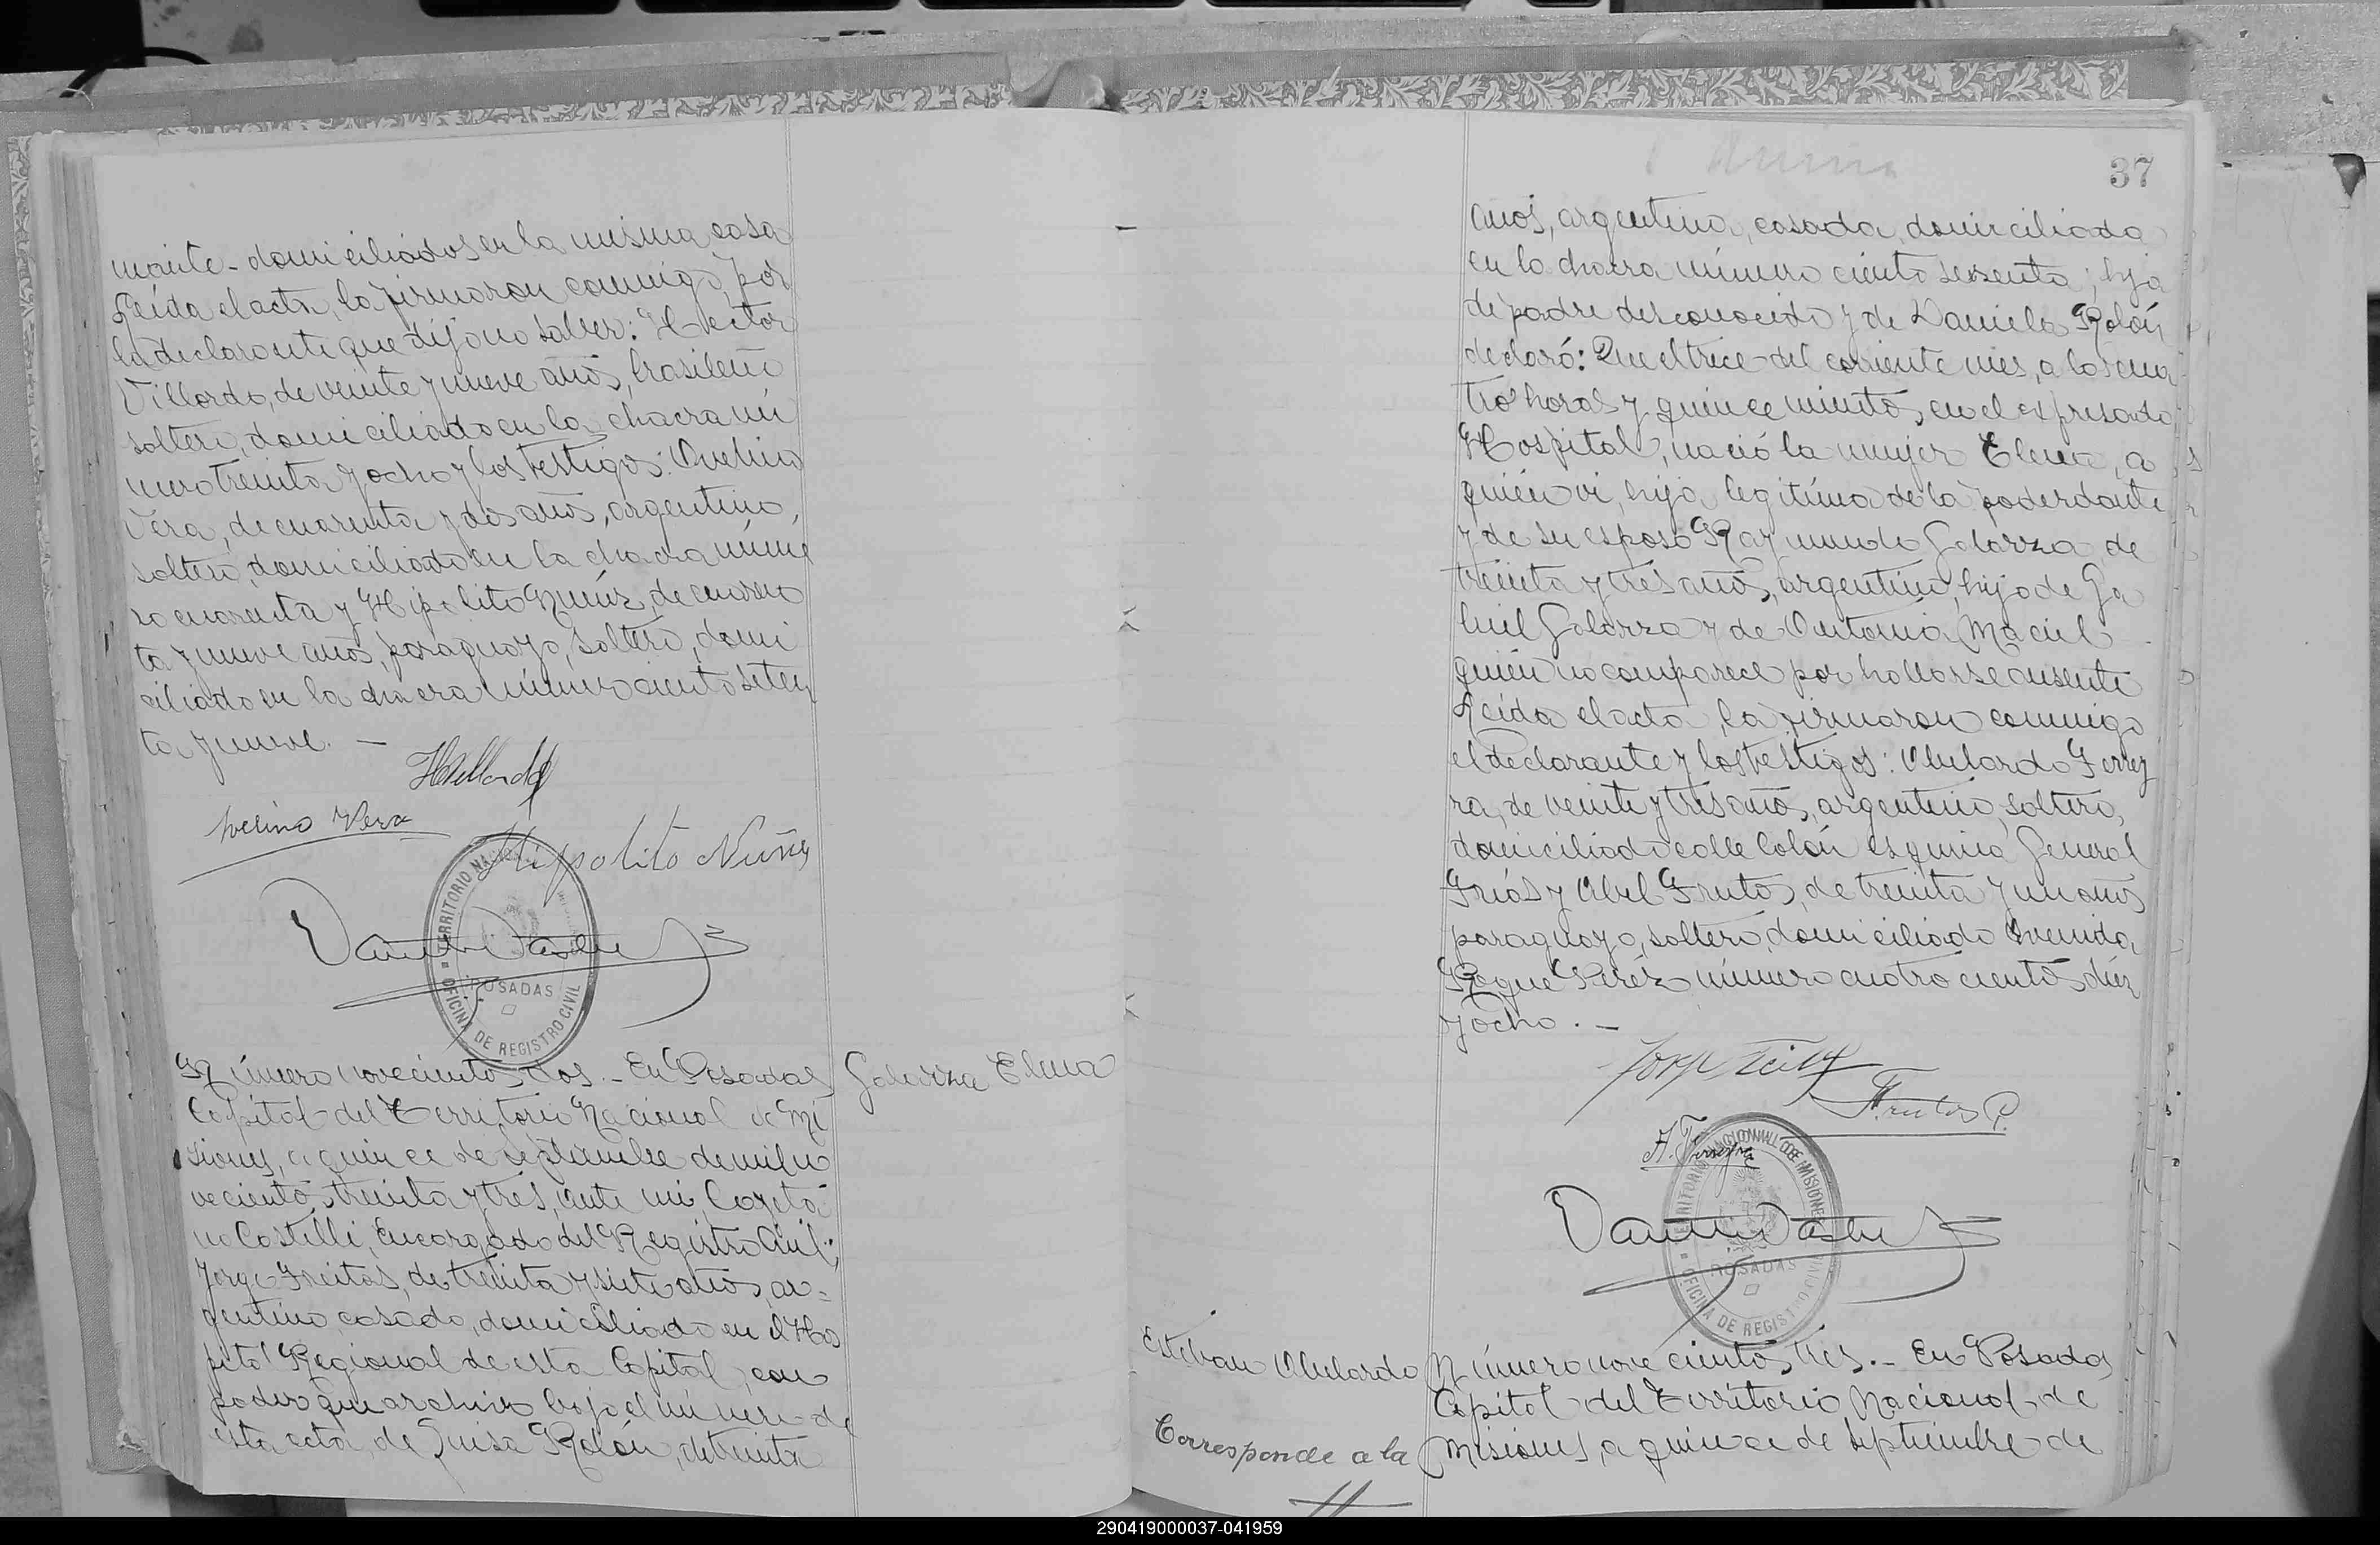 mante domiciliados en la misma casa
Leída el acta, la firmaron conmigo, por
la declarante que dijo no saber: Hector
Villordo, de veinte y nueve años, brasileño
soltero, domiciliado en la chacra nú
mero treinta y ocho y los testigos: Avelino
Vera, de cuarenta y dos años, argentino,
soltero, domiciliado en la chacra núme
ro cuarenta y Hipolito Nuñez, de cuaren
ta y nueve años, paraguayo, soltero, domi
ciliado en la chacra número ciento seten
ta y nueve. —
HVillordo
Avelino Vera
Hipolito Nuñez
TERRITORIO NACIONAL
POSADAS
OFICINA DE REGISTRO CIVIL
Número novecientos dos. - En Posadas
Galarza Elena
Capital del Territorio Nacional de Mi
siones, a quince de septiembre de mil no
vecientos treinta y tres, ante mi, Cayeta
no Castelli, Encargado del Registro Civil;
Jorge Freitas, de treinta y siete años, ar-
gentino, casado, domiciliado en el Hos
pital Regional de esta Capital, con
poder que archivo bajo el número de
esta acta, de Luisa Rolón, de treinta
37
años, argentina, casada, domiciliada
en la chacra número ciento sesenta; hija
de padre desconocido y de Daniela Rolón
declaró: Que el trece del corriente mes, a las cua
tro horas y quince minutos, en el expresado
Hospital, nació la mujer Elena, a
quién vi, hija legitima de la poderdante
y de su esposo Raymundo Galarza, de
treinta y tres años, argentino, hijo de Ga
briel Galarza y de Antonia Maciel
quién no comparece por hallarse ausente
Leída el acta, la firmaron conmigo
el declarante y los testigos: Abelardo Ferrey
ra, de veinte y tres años, argentino, soltero,
domiciliado calle Colón esquina General
Frías y Abel Frutos, de treinta y un años
paraguayo, soltero, domiciliado Avenida
Roque Peréz número cuatrocientos diez
y ocho. —
Frutos
A. Ferreyra
TERRITORIO NACIONAL DE MISIONES
POSADAS
OFICINA DE REGISTRO CIVIL
Esteban Abelardo
Número novecientos tres. - En Posadas
Capital del Territorio Nacional de
Corresponde a la
Misiones, a quince de septiembre de
290419000037-041959